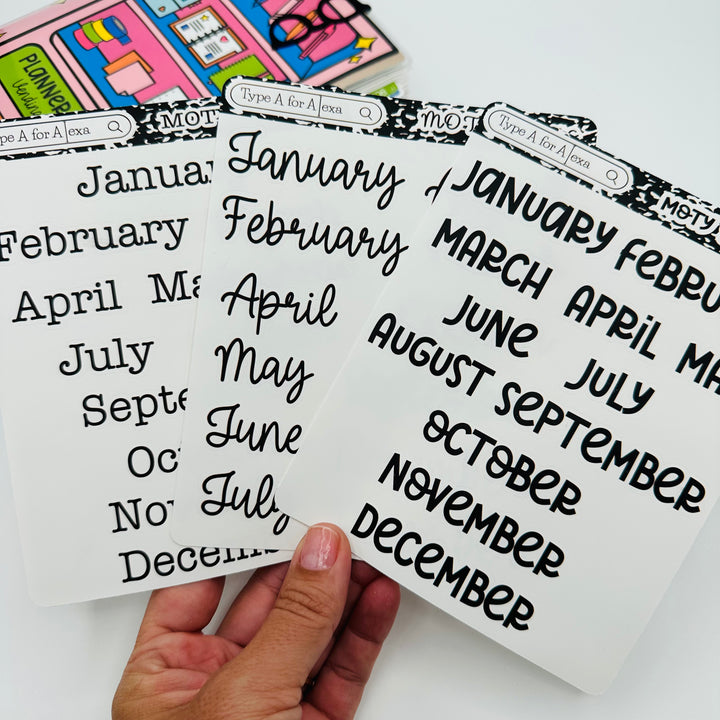 PLANNER
Vending
Type A for Alexa
MOT
Januar
February
April Ma
July
Septe
Oc
Nov
Decem
Type A for Alexa
MOTY
January
February
April
May
June
July
Type A for Alexa
MOTY
JANUARY FEBRU
MARCH APRIL MA
JUNE JULY
AUGUST SEPTEMBER
OCTOBER
NOVEMBER
DECEMBER